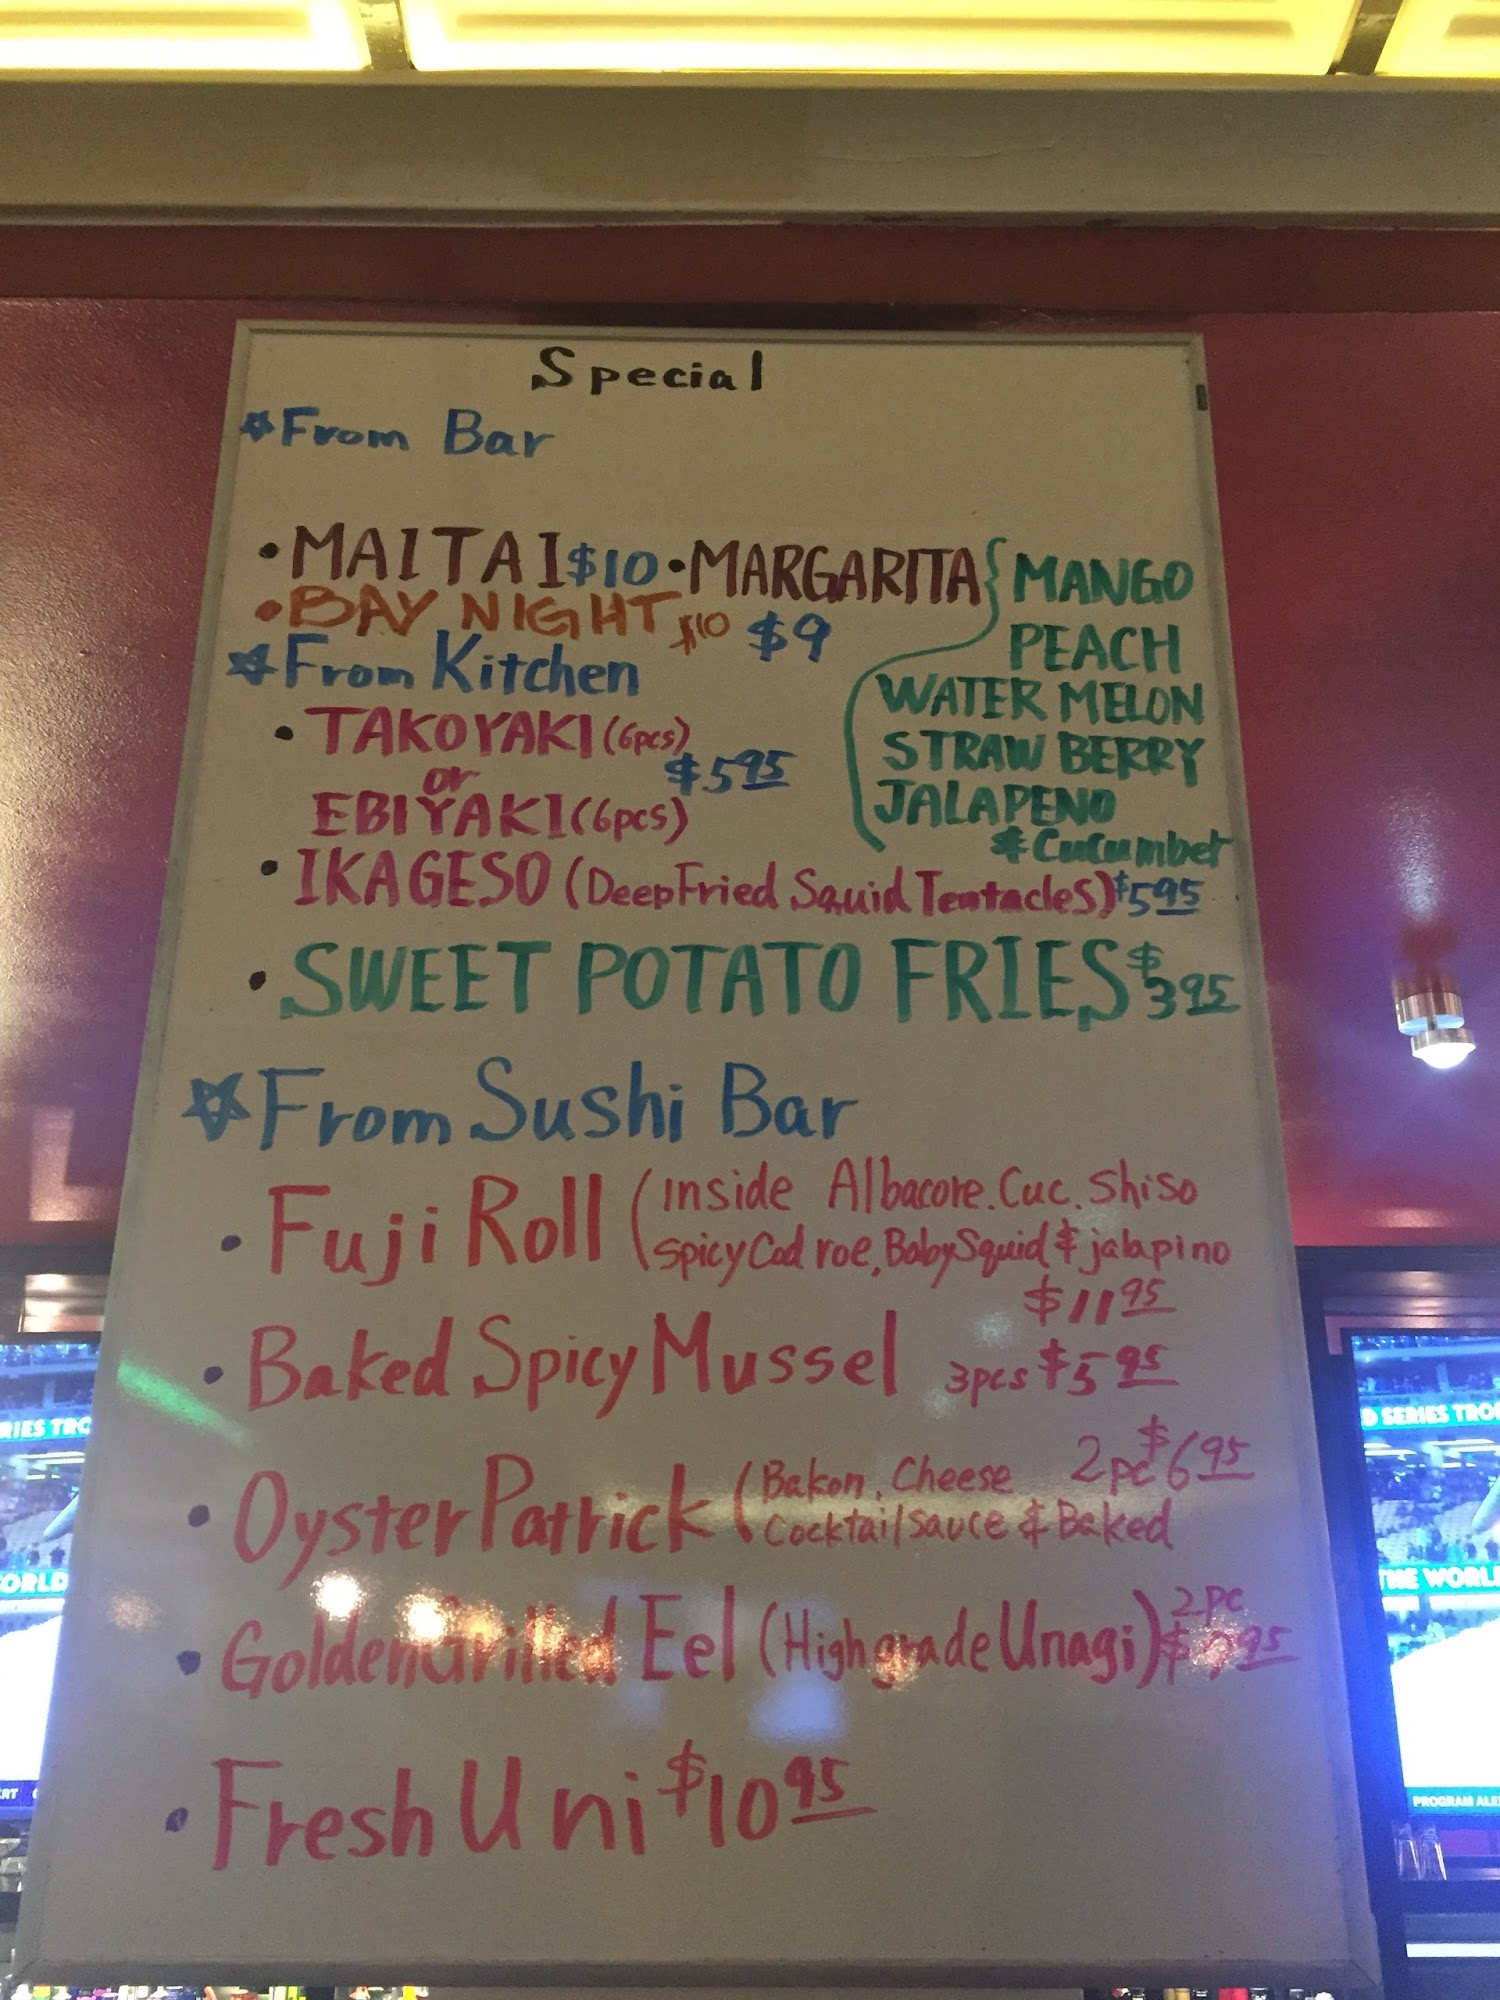 Special
From Bar
• MAITAI $10 • MARGARITA { MANGO
• BAY NIGHT $10 $9
PEACH
WATER MELON
STRAW BERRY
JALAPENO
& Cucumber
From Kitchen
• TAKOYAKI (6pcs)
or $5 95
EBIYAKI (6pcs)
• IKAGESO (Deep Fried Squid Tentacles) $5 95
• SWEET POTATO FRIES $3 95
From Sushi Bar
• Fuji Roll (Inside Albacore. Cuc. Shiso
Spicy Cod roe, Baby Squid & jalapino
$11 95
• Baked Spicy Mussel 3pcs $5 95
• Oyster Patrick (Bakon, Cheese 2pc $6 95
Cocktail sauce & Baked
• Golden Grilled Eel (High grade Unagi) 2pc
• Fresh Uni $10 95
RIES TRO
ORLD
D SERIES TRO
THE WORL
PROGRAM ALE